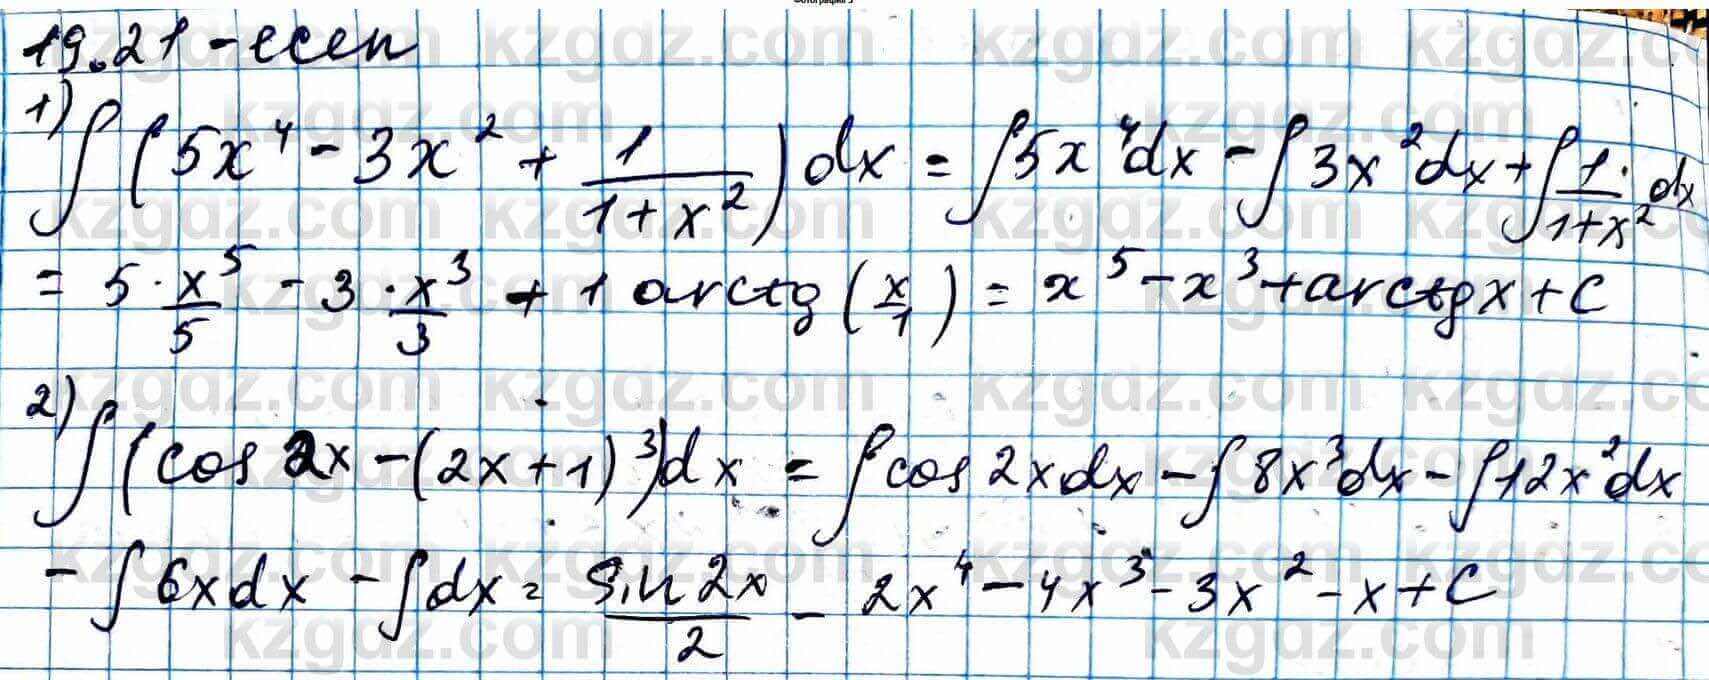 19.21-есеп
1) ∫(5x⁴ - 3x² + 1/(1+x²))dx = ∫5x⁴dx - ∫3x²dx + ∫1/(1+x²) dx
= 5·x⁵/5 - 3·x³/3 + 1 arctg(x/1) = x⁵ - x³ + arctgx + C
2) ∫(cos 2x - (2x+1)³)dx = ∫cos 2xdx - ∫8x³dx - ∫12x²dx
- ∫6xdx - ∫dx = sin 2x/2 - 2x⁴ - 4x³ - 3x² - x + C
kzgdz.com